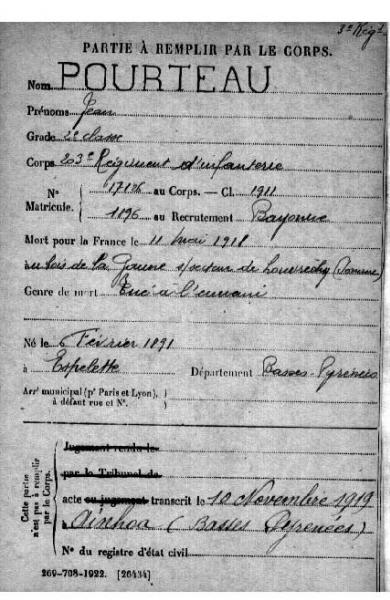 3e Régt
PARTIE À REMPLIR PAR LE CORPS.
Nom POURTEAU
Prénoms Jean
Grade 2e classe
Corps 203e Régiment d'infanterie
N° Matricule. { 17126 au Corps. — Cl. 1911
1896 au Recrutement Bayonne
Mort pour la France le 11 Mai 1918
au bois de la Gaune s/secteur de Louvrechy (Somme)
Genre de mort Tué à l'ennemi
Né le 6 Février 1891
à Espelette Département Basses-Pyrénées
Arrt municipal (pr Paris et Lyon), à défaut rue et N°.
Cette partie n'est pas à remplir par le Corps.
Jugement rendu le
par le Tribunal de
acte ou jugement transcrit le 10 Novembre 1919
à Ainhoa (Basses Pyrénées)
N° du registre d'état civil
269-708-1922. [26434]